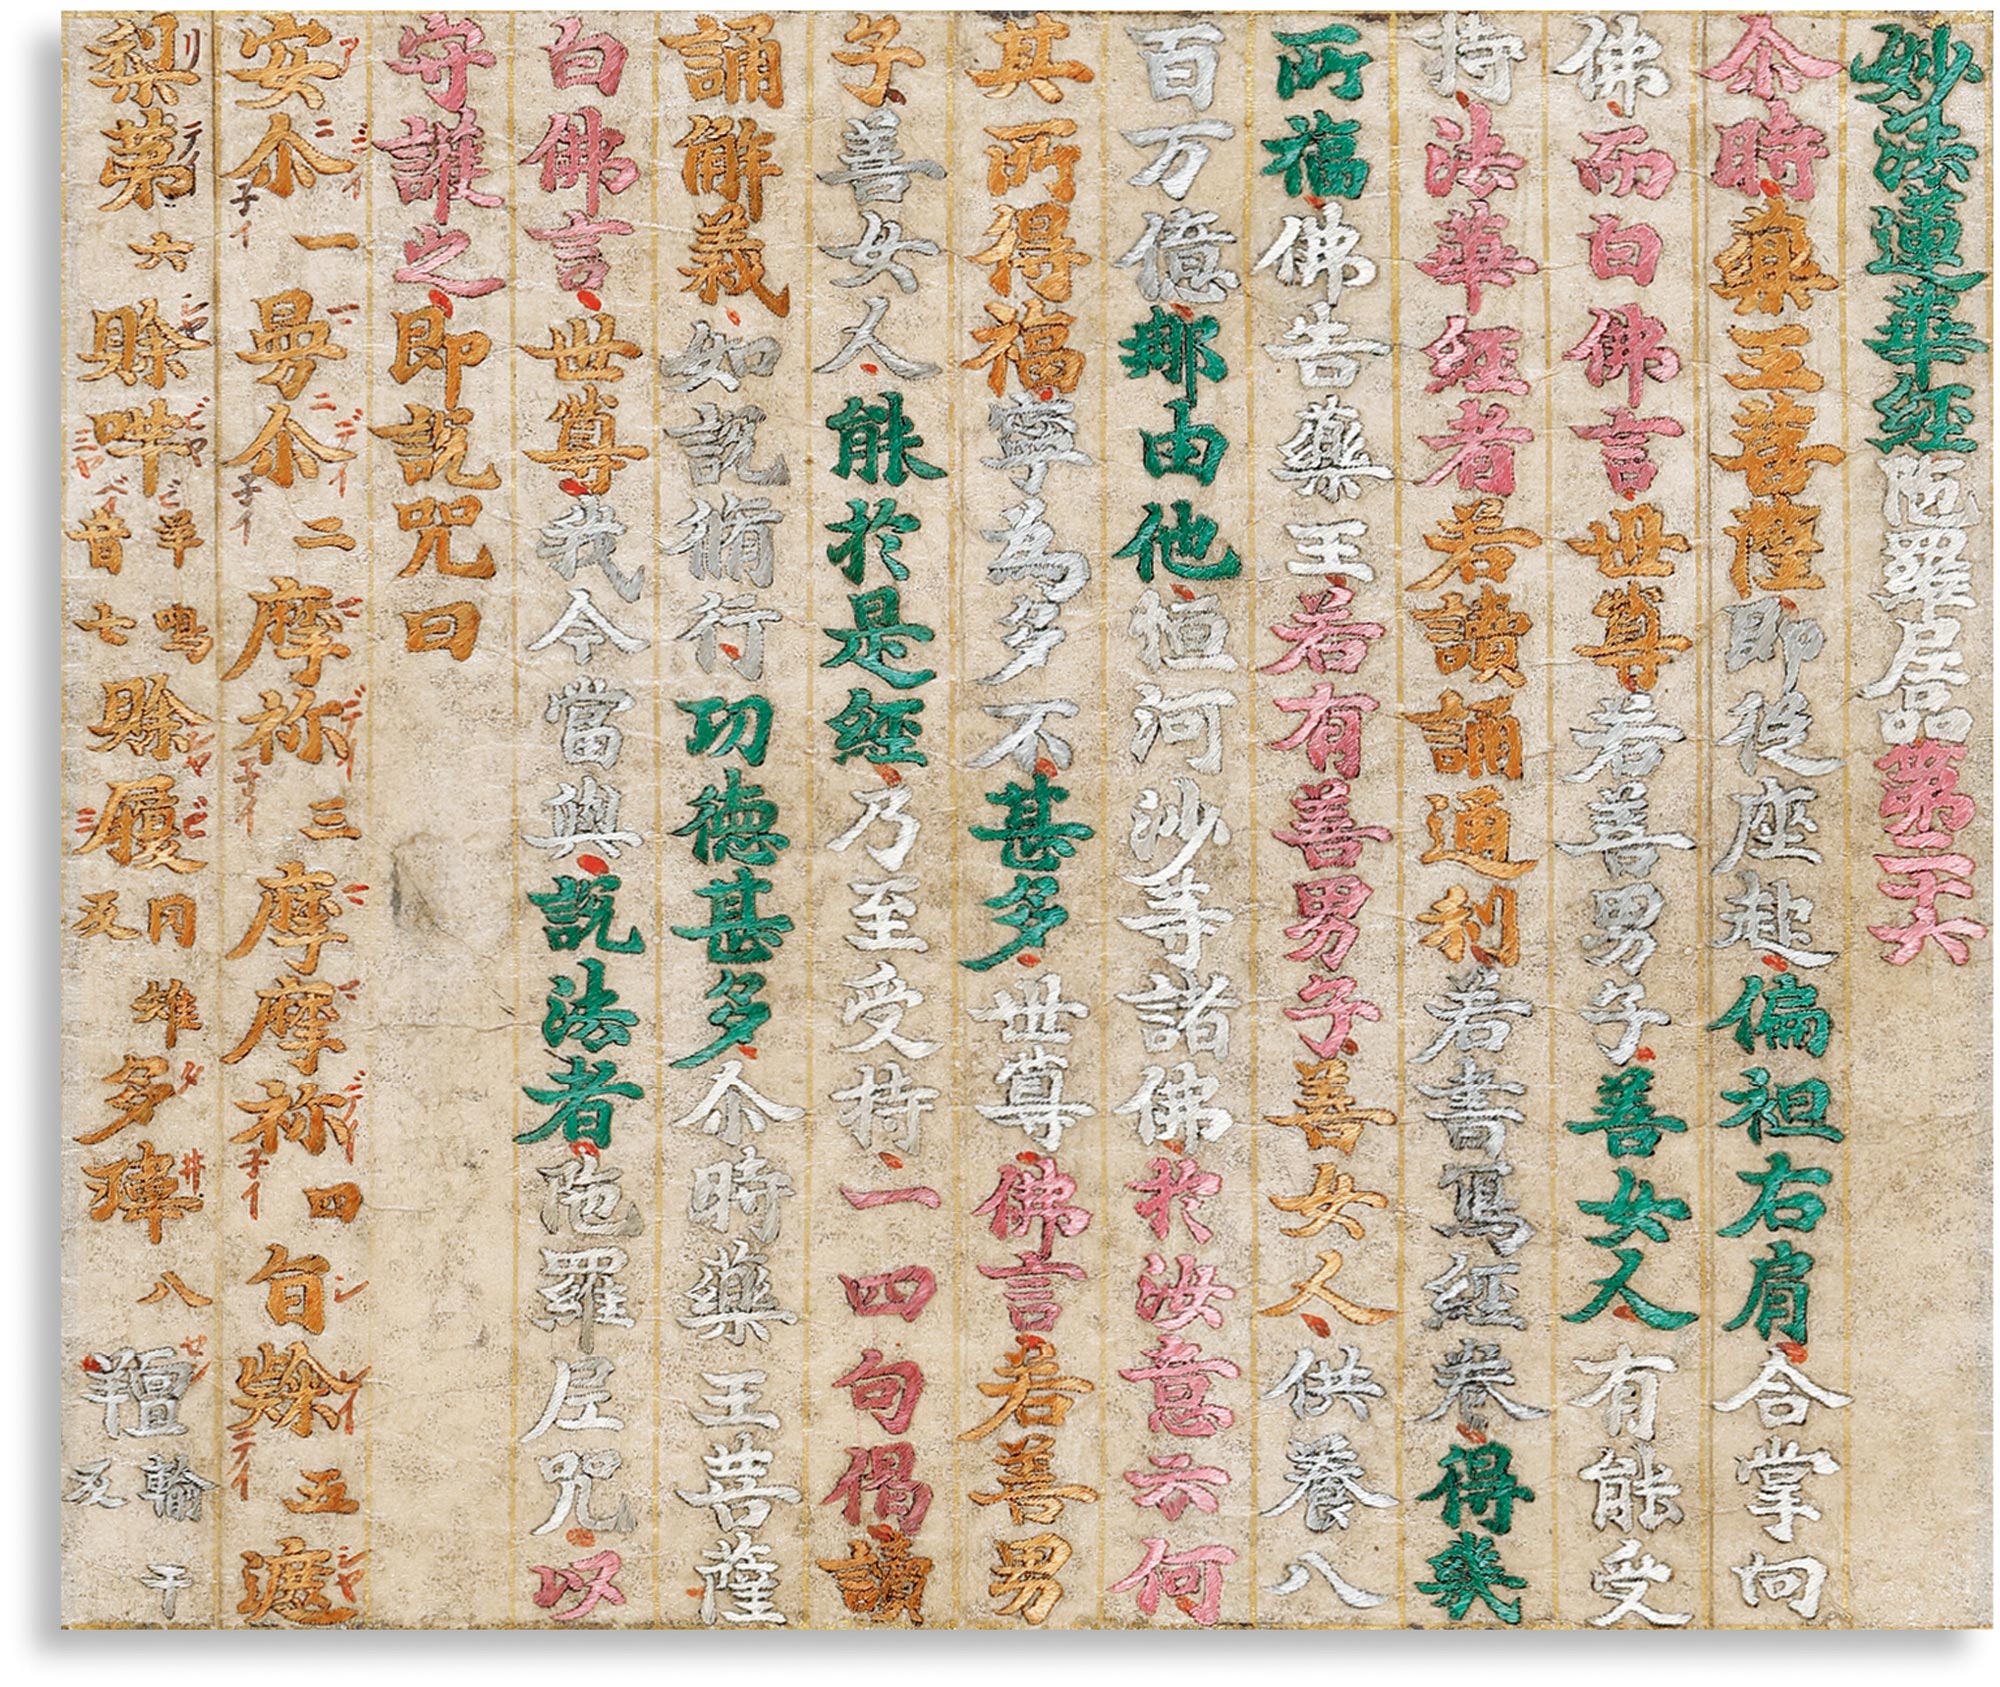 妙法蓮華經陁羅尼品第二十六
尒時藥王菩薩即從座起偏袒右肩合掌向
佛而白佛言世尊若善男子善女人有能受
持法華經者若讀誦通利若書寫經卷得幾
所福佛告藥王若有善男子善女人供養八
百万億那由他恒河沙等諸佛於汝意云何
其所得福寧為多不甚多世尊佛言若善男
子善女人能於是經乃至受持一四句偈讀
誦解義如說脩行功德甚多尒時藥王菩薩
白佛言世尊我今當與說法者陁羅尼咒以
守護之即說咒曰
安尒一曼尒二摩祢三摩摩祢四旨隸五遮
梨第六賒咩羊鳴音七賒履冈雉反多瑋八羶輸干反